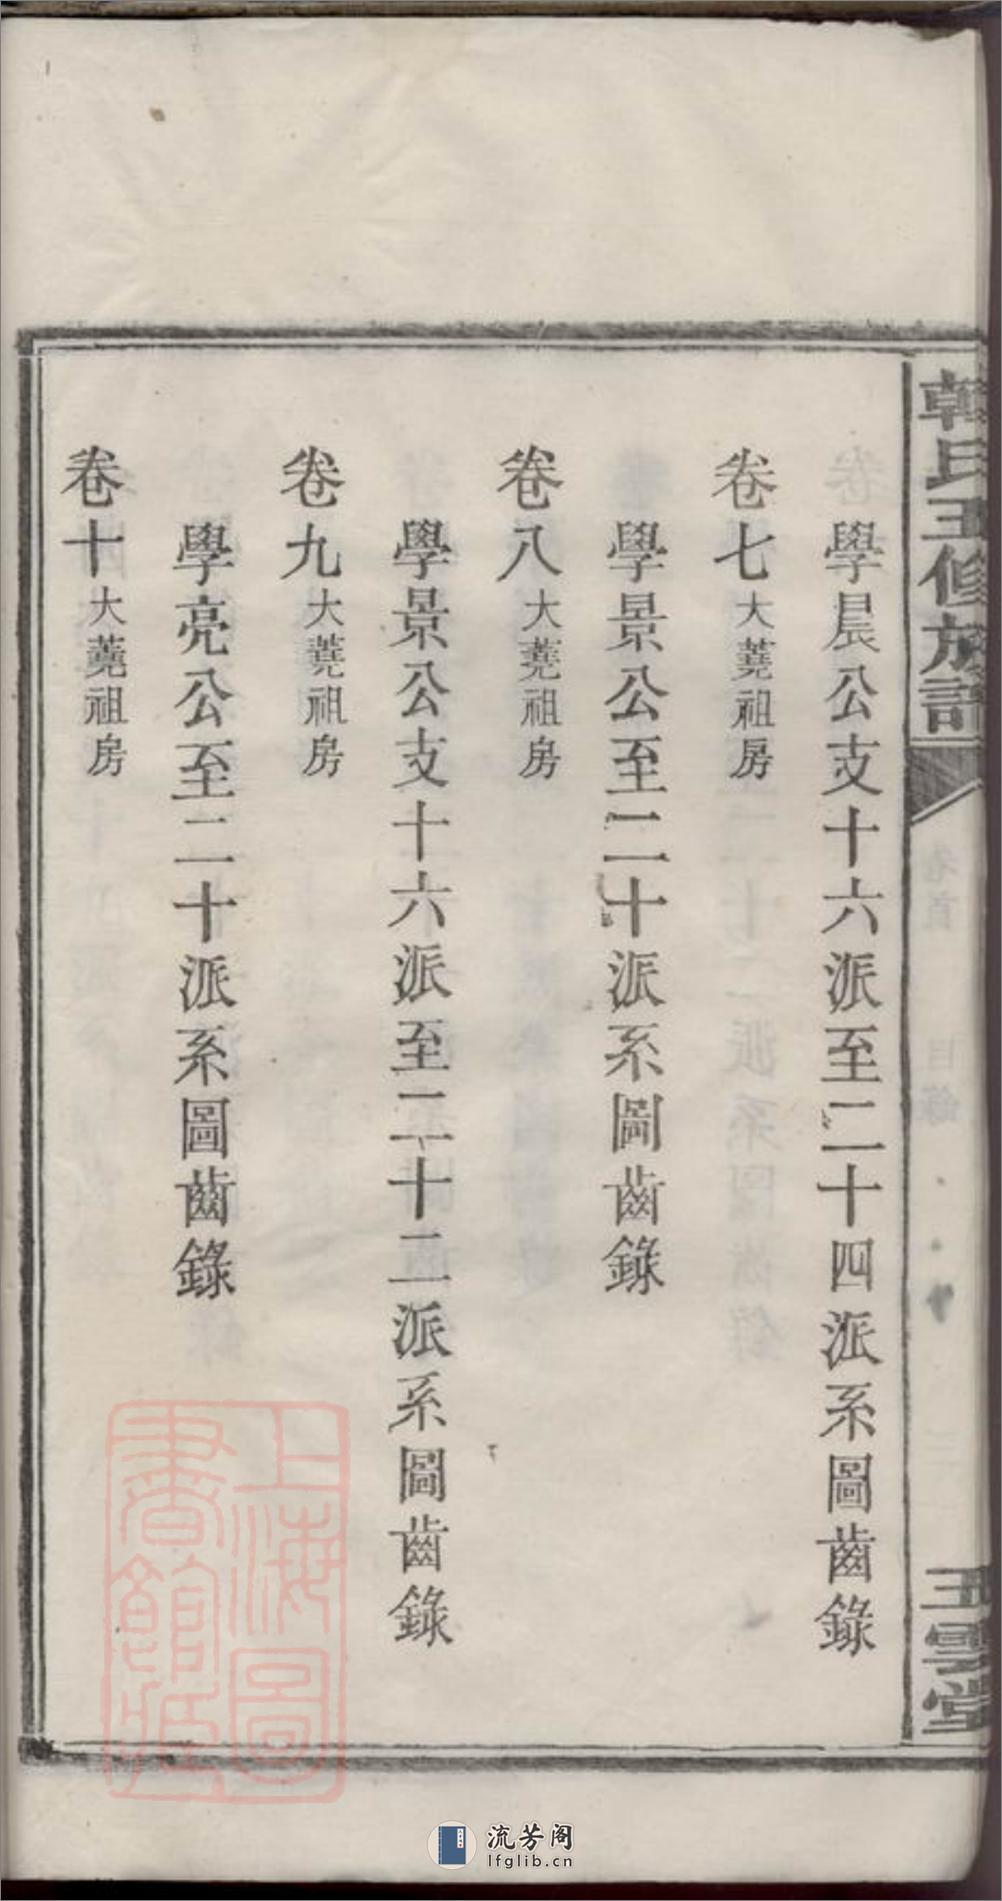 韓氏五修族譜
卷首
目錄
五雲堂
學晨公支十六派至二十四派系圖齒錄
卷七大蕘祖房
學景公至二十派系圖齒錄
卷八大蕘祖房
學景公支十六派至二十二派系圖齒錄
卷九大蕘祖房
學亮公至二十派系圖齒錄
卷十大蕘祖房
上海圖書館藏
流芳阁
lfglib.cn